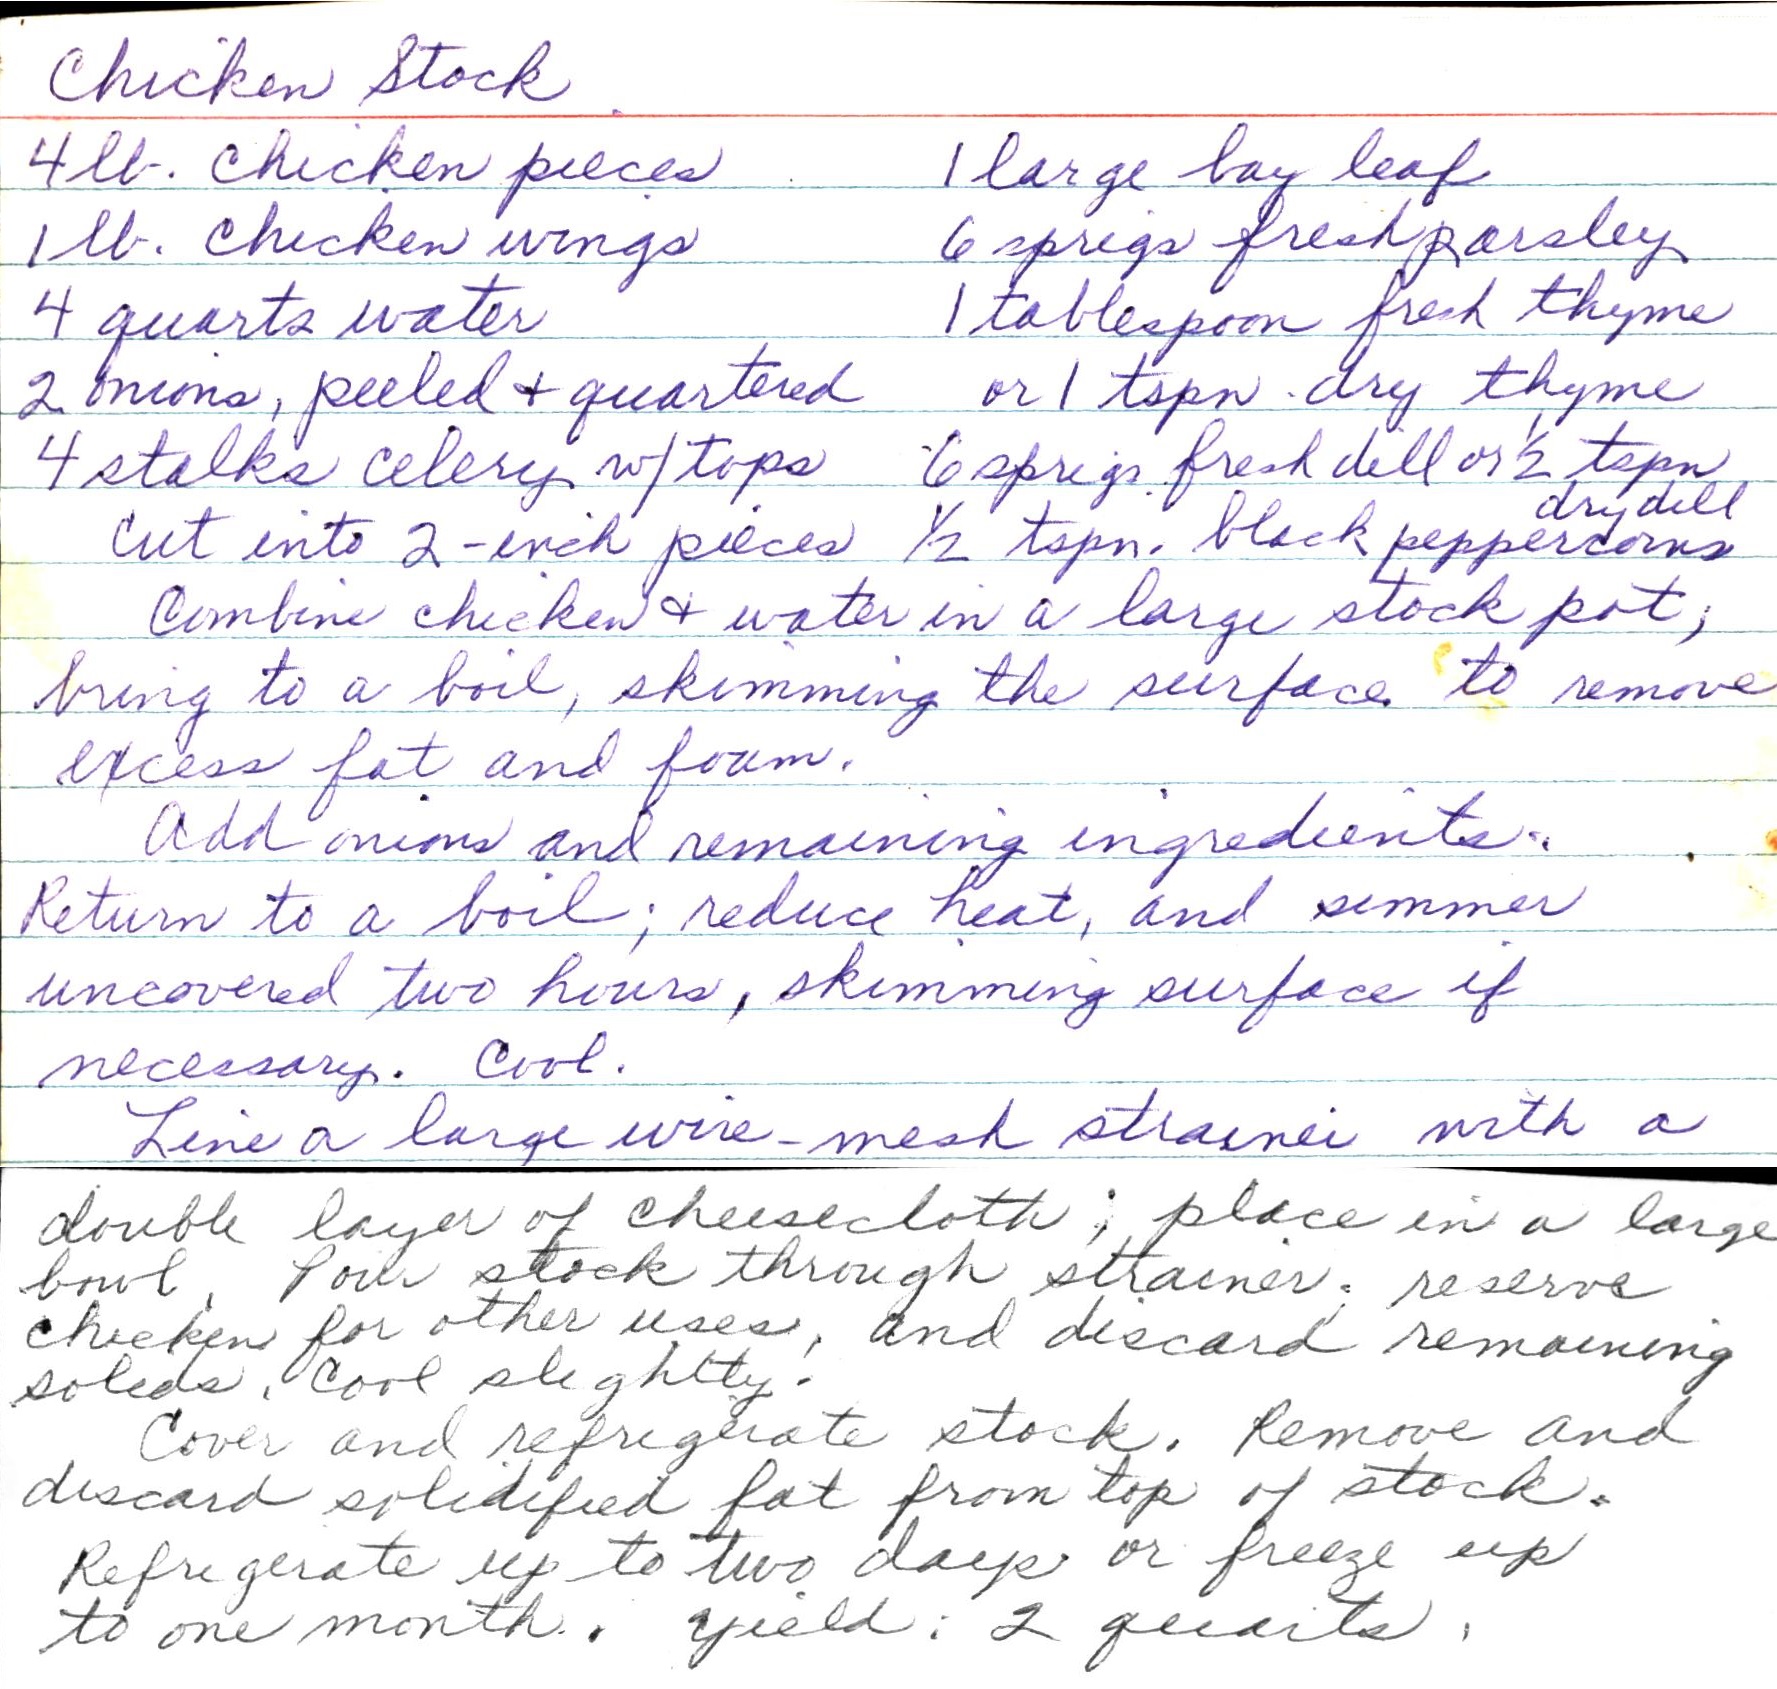 Chicken Stock
4 lb. chicken pieces
1 lb. chicken wings
4 quarts water
2 onions, peeled + quartered
4 stalks celery w/tops
Cut into 2-inch pieces
1 large bay leaf
6 sprigs fresh parsley
1 tablespoon fresh thyme
or 1 tspn. dry thyme
6 sprigs fresh dill or 1/2 tspn
dry dill
1/2 tspn. black peppercorns
Combine chicken + water in a large stock pot;
bring to a boil, skimming the surface to remove
excess fat and foam.
Add onions and remaining ingredients.
Return to a boil; reduce heat, and simmer
uncovered two hours, skimming surface if
necessary. Cool.
Line a large wire-mesh strainer with a
double layer of cheesecloth; place in a large
bowl. Pour stock through strainer; reserve
chicken for other uses, and discard remaining
solids. Cool slightly.
Cover and refrigerate stock. Remove and
discard solidified fat from top of stock.
Refrigerate up to two days or freeze up
to one month. Yield: 2 quarts.